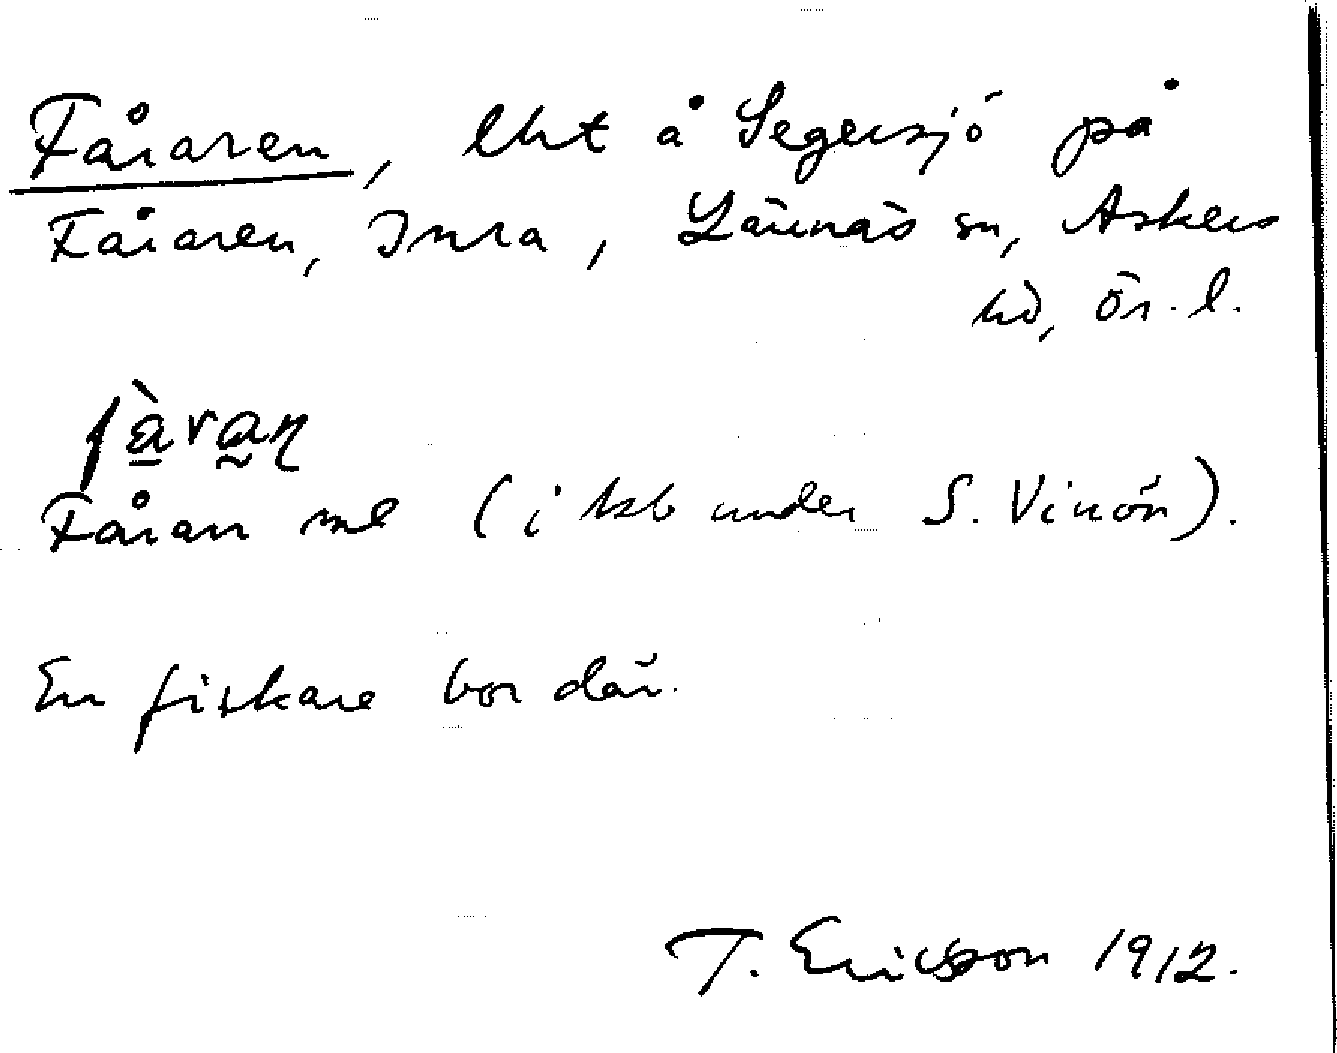 Fåraren, lht å Segersjö på
Fåraren, Inra, Lännäs sn, Askers
hd, Ör. l.
fàran
Fåran ml (i hsb under S. Vinön).
En fiskare bor där.
T. Ericsson 1912.